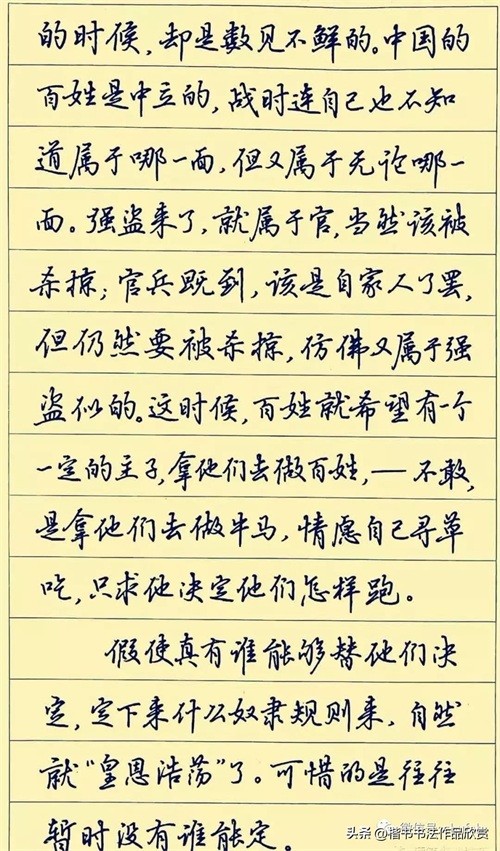 的时候，却是数见不鲜的。中国的
百姓是中立的，战时连自己也不知
道属于哪一面，但又属于无论哪一
面。强盗来了，就属于官，当然该被
杀掠；官兵既到，该是自家人了罢，
但仍然要被杀掠，仿佛又属于强
盗似的。这时候，百姓就希望有一个
一定的主子，拿他们去做百姓，——不敢，
是拿他们去做牛马，情愿自己寻草
吃，只求他决定他们怎样跑。
假使真有谁能够替他们决
定，定下来什么奴隶规则来，自然
就“皇恩浩荡”了。可惜的是往往
暂时没有谁能定。
头条 @楷书书法作品欣赏